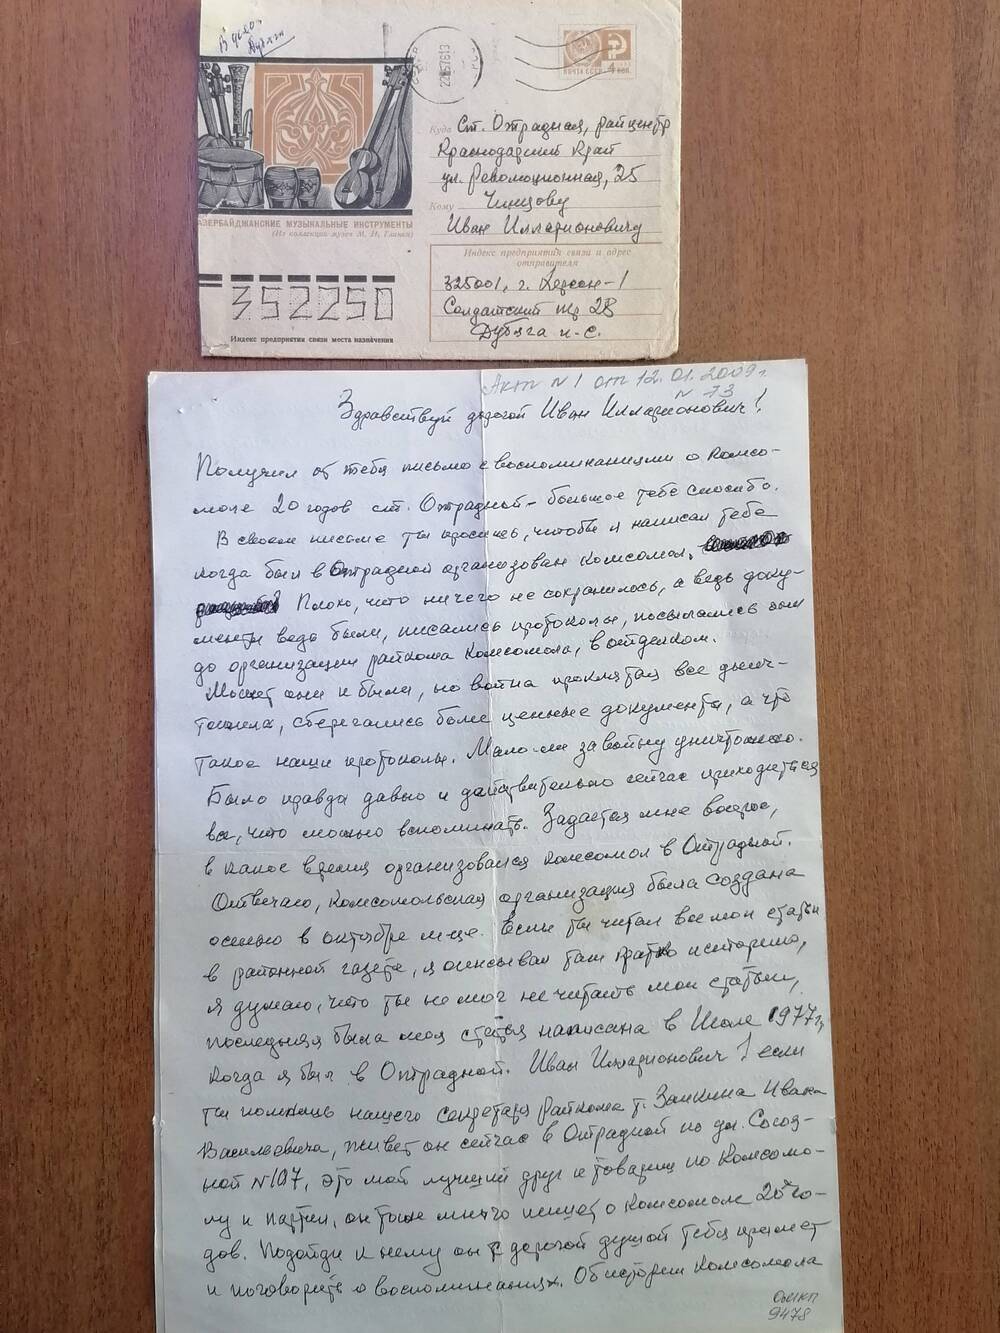 В дело
ПОЧТА СССР 4 коп.
Куда Ст. Отрадная, райцентр
Краснодарский Край
ул. Революционная, 25
Кому Чинцову
Иван Илларионовичу
АЗЕРБАЙДЖАНСКИЕ МУЗЫКАЛЬНЫЕ ИНСТРУМЕНТЫ
(Из коллекции музея М. И. Глинки)
Индекс предприятия связи и адрес
отправителя
325001, г. Херсон-1
Солдатский пр 2В
Дубяга И-С.
352250
Индекс предприятия связи места назначения
Акт №1 от 12.01.2009г.
№ 73
Здравствуй дорогой Иван Илларионович!
Получил от тебя письмо с воспоминаниями о Комсо-
моле 20 годов ст. Отрадной - большое тебе спасибо.
В своем письме ты просишь, чтобы я написал тебе
когда был в Отрадной организован комсомол.
Плохо, что ничего не сохранилось, а ведь доку-
менты ведь были, писались протоколы, посылались они
до организации райкома Комсомола, в отделком.
Может они и были, но война проклятая все
сберегались более ценные документы, а что
такое наши протоколы. Мало-ли за войну уничтожено.
Было правда давно и действительно сейчас приходиться
все, что можно вспоминать. Задается мне вопрос,
в какое время организовался комсомол в Отрадной.
Отвечаю, комсомольская организация была создана
осенью в октябре м-це. Если ты читал все мои статьи
в районной газете, я описывал там кратко историю,
я думаю, что ты не мог не читать мои статьи,
последняя была моя статья написана в Июле 1977г,
когда я был в Отрадной. Иван Илларионович! если
ты помнишь нашего секретаря райкома т. Заикина Ивана
Васильевича, живет он сейчас в Отрадной по ул. Союз-
ной №107, это мой лучший друг и товарищ по Комсомо-
лу и партии, он тоже много пишет о комсомоле 20х го-
дов. Подойди к нему он с дорогой душой тебя примет
и поговорить о воспоминаниях. Об истории комсомола
ОМКП
9478